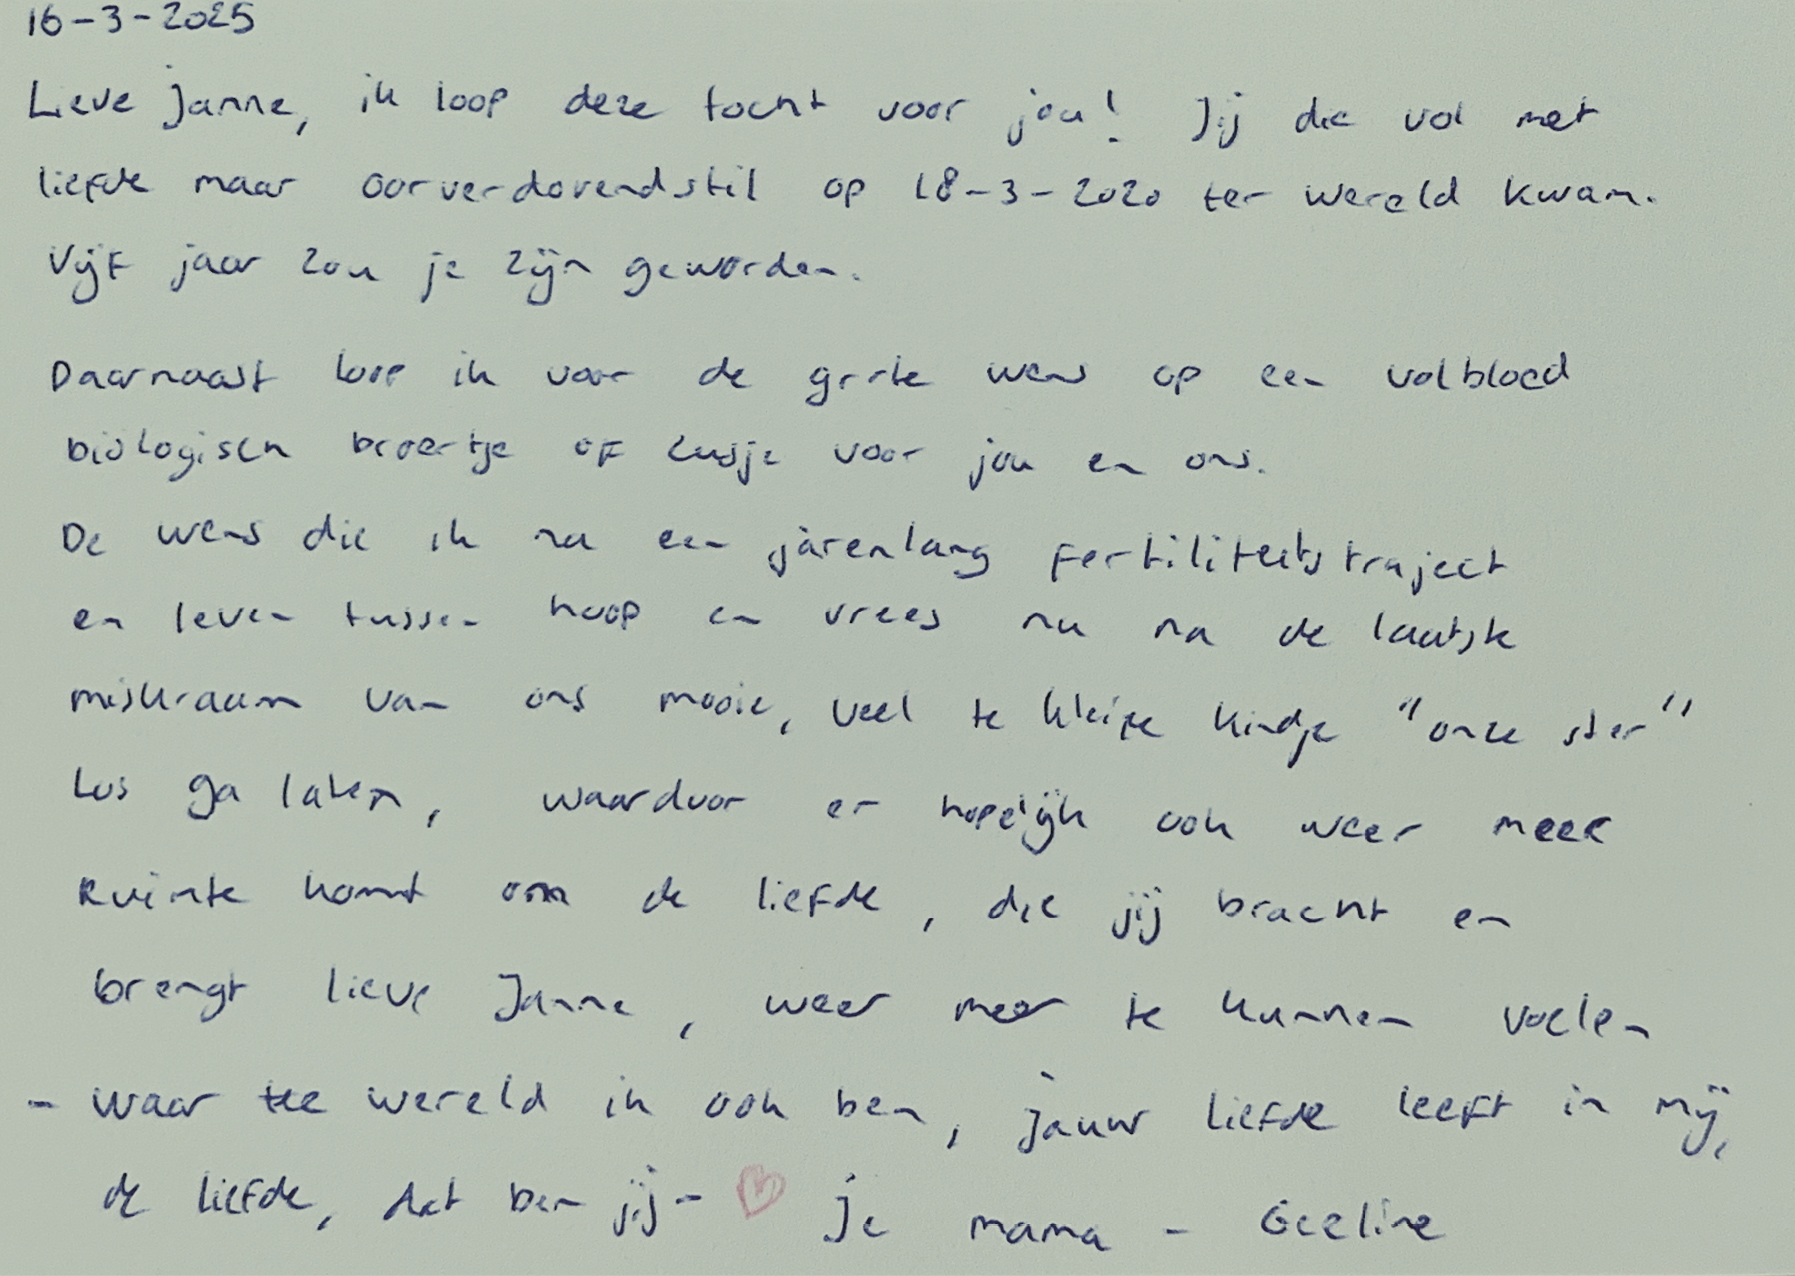 16-3-2025
Lieve Janne, ik loop deze tocht voor jou! Jij die vol met
liefde maar oorverdovend stil op 18-3-2020 ter wereld kwam.
Vijf jaar zou je zijn geworden.
Daarnaast loop ik voor de grote wens op een volbloed
biologisch broertje of zusje voor jou en ons.
De wens die ik na een jarenlang fertiliteitstraject
en leven tussen hoop en vrees nu na de laatste
miskraam van ons mooie, veel te kleine kindje "onze ster"
los ga laten, waardoor er hopelijk ook weer meer
Ruimte komt om de liefde, die jij bracht en
brengt lieve Janne, weer meer te kunnen voelen
- Waar ter wereld ik ook ben, jouw liefde leeft in mij,
de liefde, dat ben jij - ♡ Je mama - Geeline